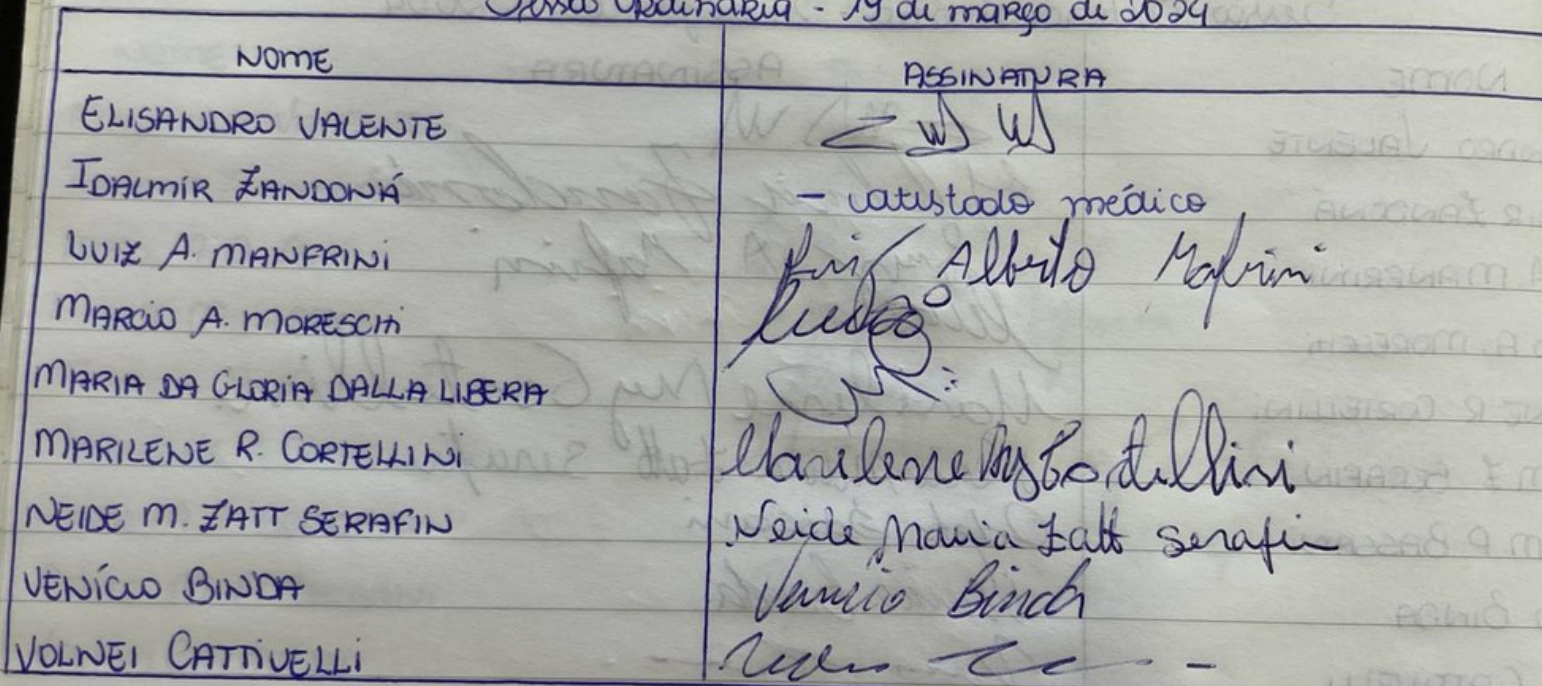 Sessão Ordinária - 19 de março de 2024
NOME ASSINATURA
ELISANDRO VALENTE
IDALMIR ZANDONÁ - atestado médico
LUIZ A. MANFRINI Luiz Alberto Mafrini
MARCIO A. MORESCHI
MARIA DA GLORIA DALLA LIBERA
MARILENE R. CORTELLINI Marilene Cortellini
NEIDE M. ZATT SERAFIN Neide Maria Zatt Serafin
VENÍCIO BINDA Venicio Binda
VOLNEI CATTIVELLI